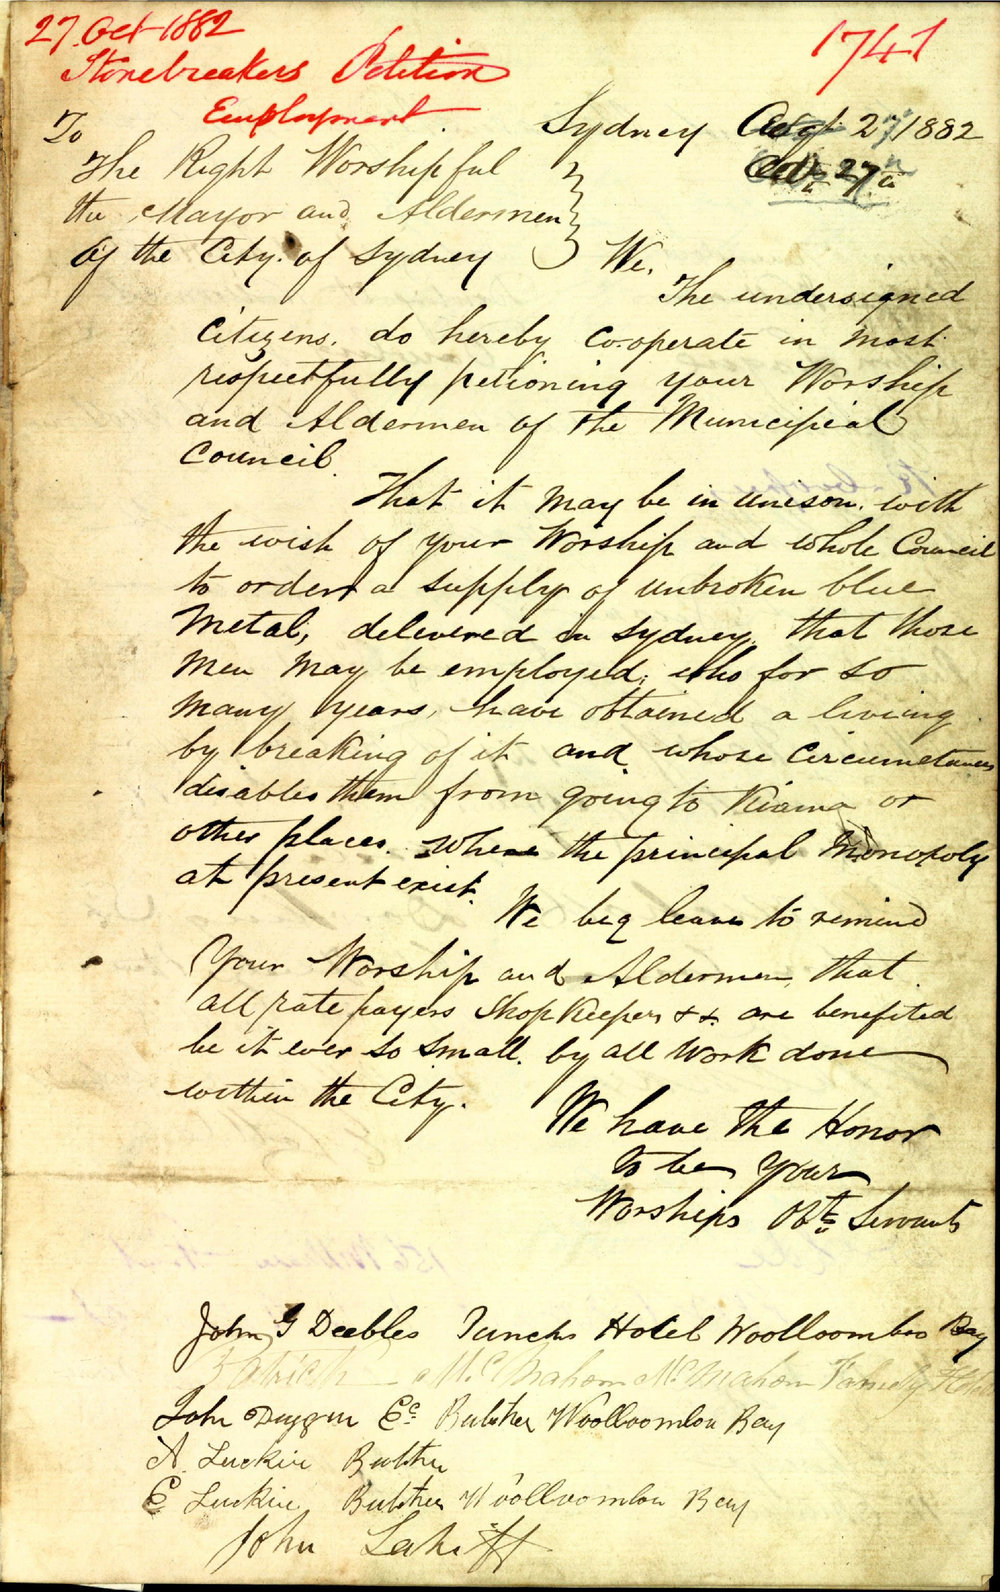 27 Oct 1882
1741
Stonebreakers Petition
Employment
To
Sydney 27 1882
27
The Right Worshipful
the Mayor and Aldermen
of the City of Sydney
We.
The undersigned
Citizens. do hereby co-operate in most
respectfully petioning your Worship
and Aldermen of the Municipial
Council.
That it may be in unison. with
the wish of your Worship and whole Council
to order a supply of unbroken blue
Metal, delivered in Sydney, that those
men may be employed, who for so
many years, have obtained a living
by breaking of it and whose circumstances
disables them from going to Kiama or
other places. where the principal Monopoly
at present exist.
We beg leave to remind
Your Worship and Aldermen, that
all rate payers Shop Keepers &&. are benefited
be it ever so small. by all work done
within the City.
We have the Honor
to be Your
Worships Obt Servants
John G Deebles Hotel Woolloomloo Bay
Patrick McMahon McMahon Family Hotel
John Butcher Woolloomloo Bay
A Luckie Butcher
E Luckie Butcher Woolloomloo Bay
John Lahiff